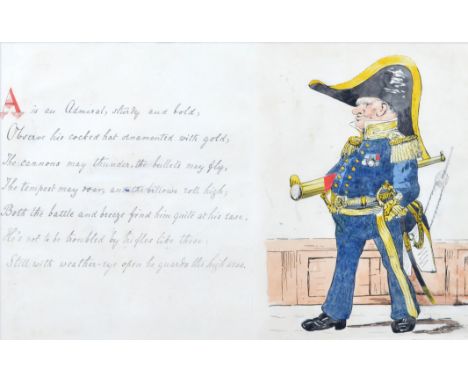 A is an Admiral, sturdy and bold,
Observe his cocked hat ornamented with gold,
The cannons may thunder, the bullets may fly,
The tempest may roar, and the billows roll high,
Both the battle and breeze find him quite at his ease.
He's not to be troubled by trifles like these.
Still with weather-eye open he guards the high seas.